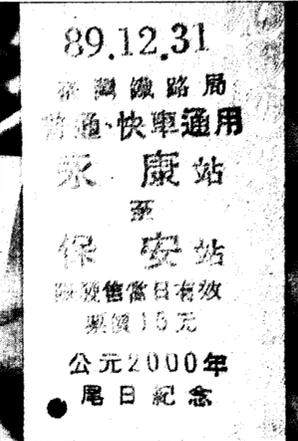 89.12.31
臺灣鐵路局
普通·快車通用
永康站
至
保安站
限發售當日有效
票價15元
公元2000年
尾日紀念